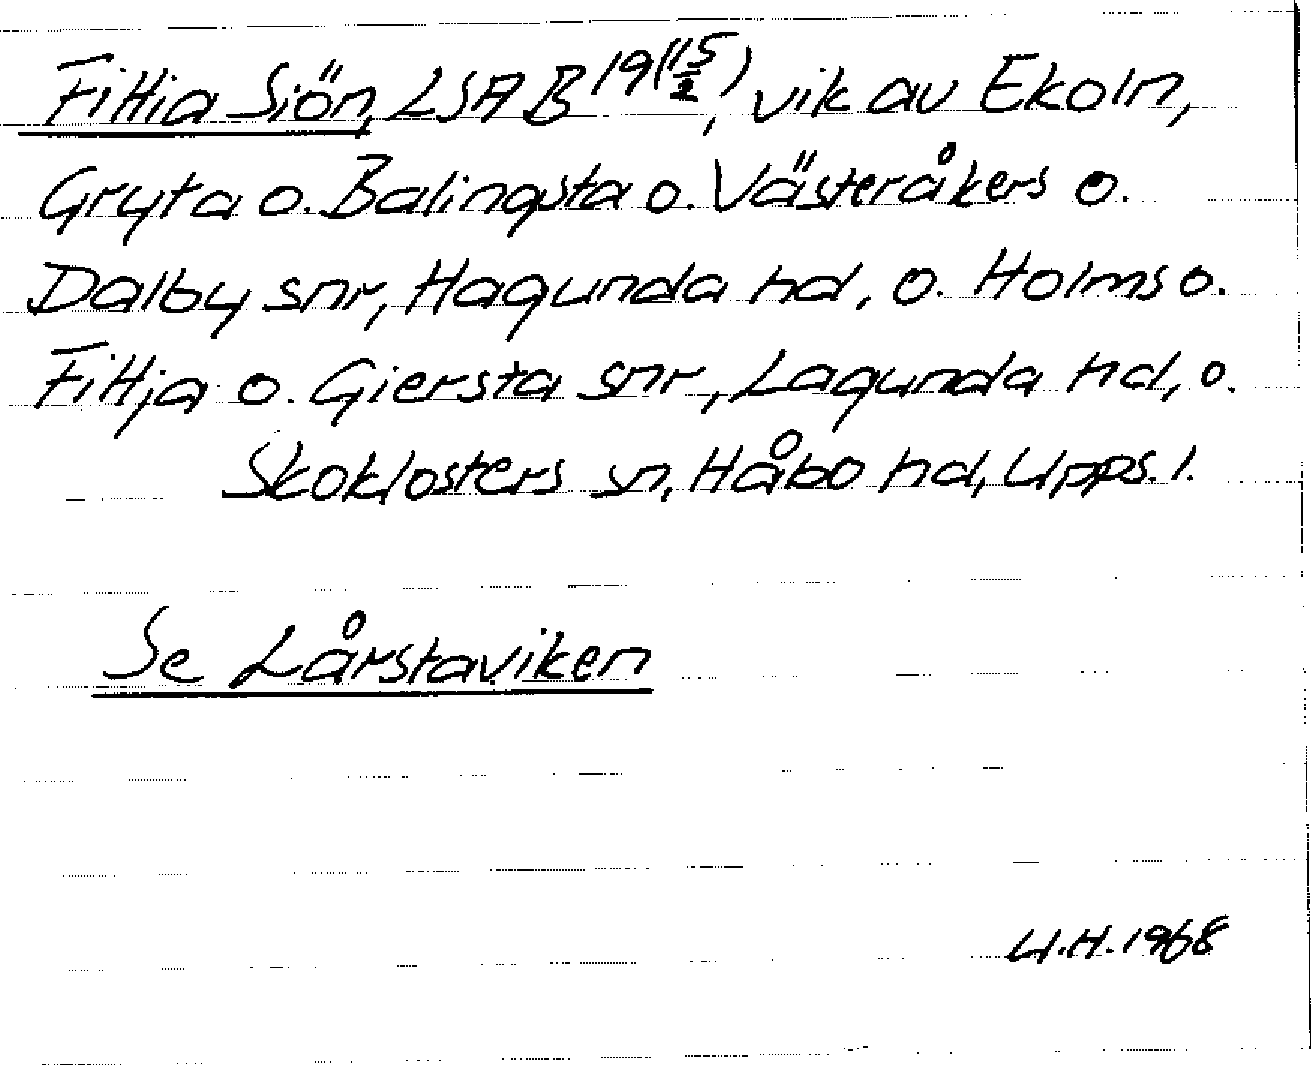 Fittia Siön, LSA B 19(15/2), vik av Ekoln,
Gryta o. Balingsta o. Västeråkers o.
Dalby snr, Hagunda hd, o. Holms o.
Fittja o. Giersta snr, Lagunda hd, o.
Skoklosters sn, Håbo hd, Upps. l.
Se Lårstaviken
U.H. 1968